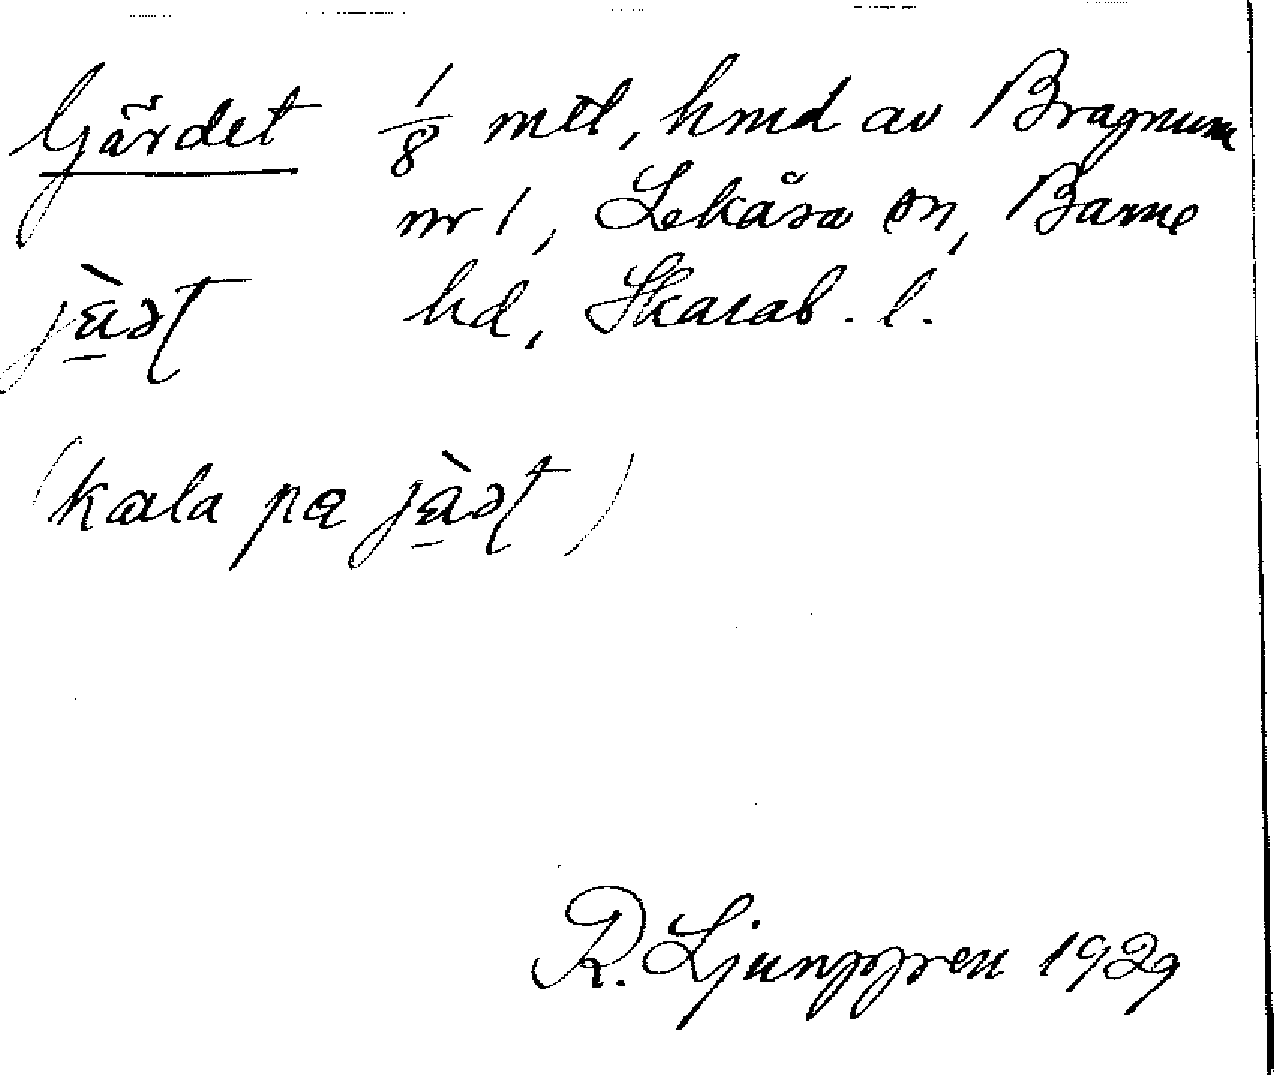 Gärdet 1/8 mtl, hmd av Bragnum
nr 1, Lekåsa sn, Barne
jä̀ət hd, Skarab. l.
(kala pa jä̀ət)
R. Ljunggren 1929